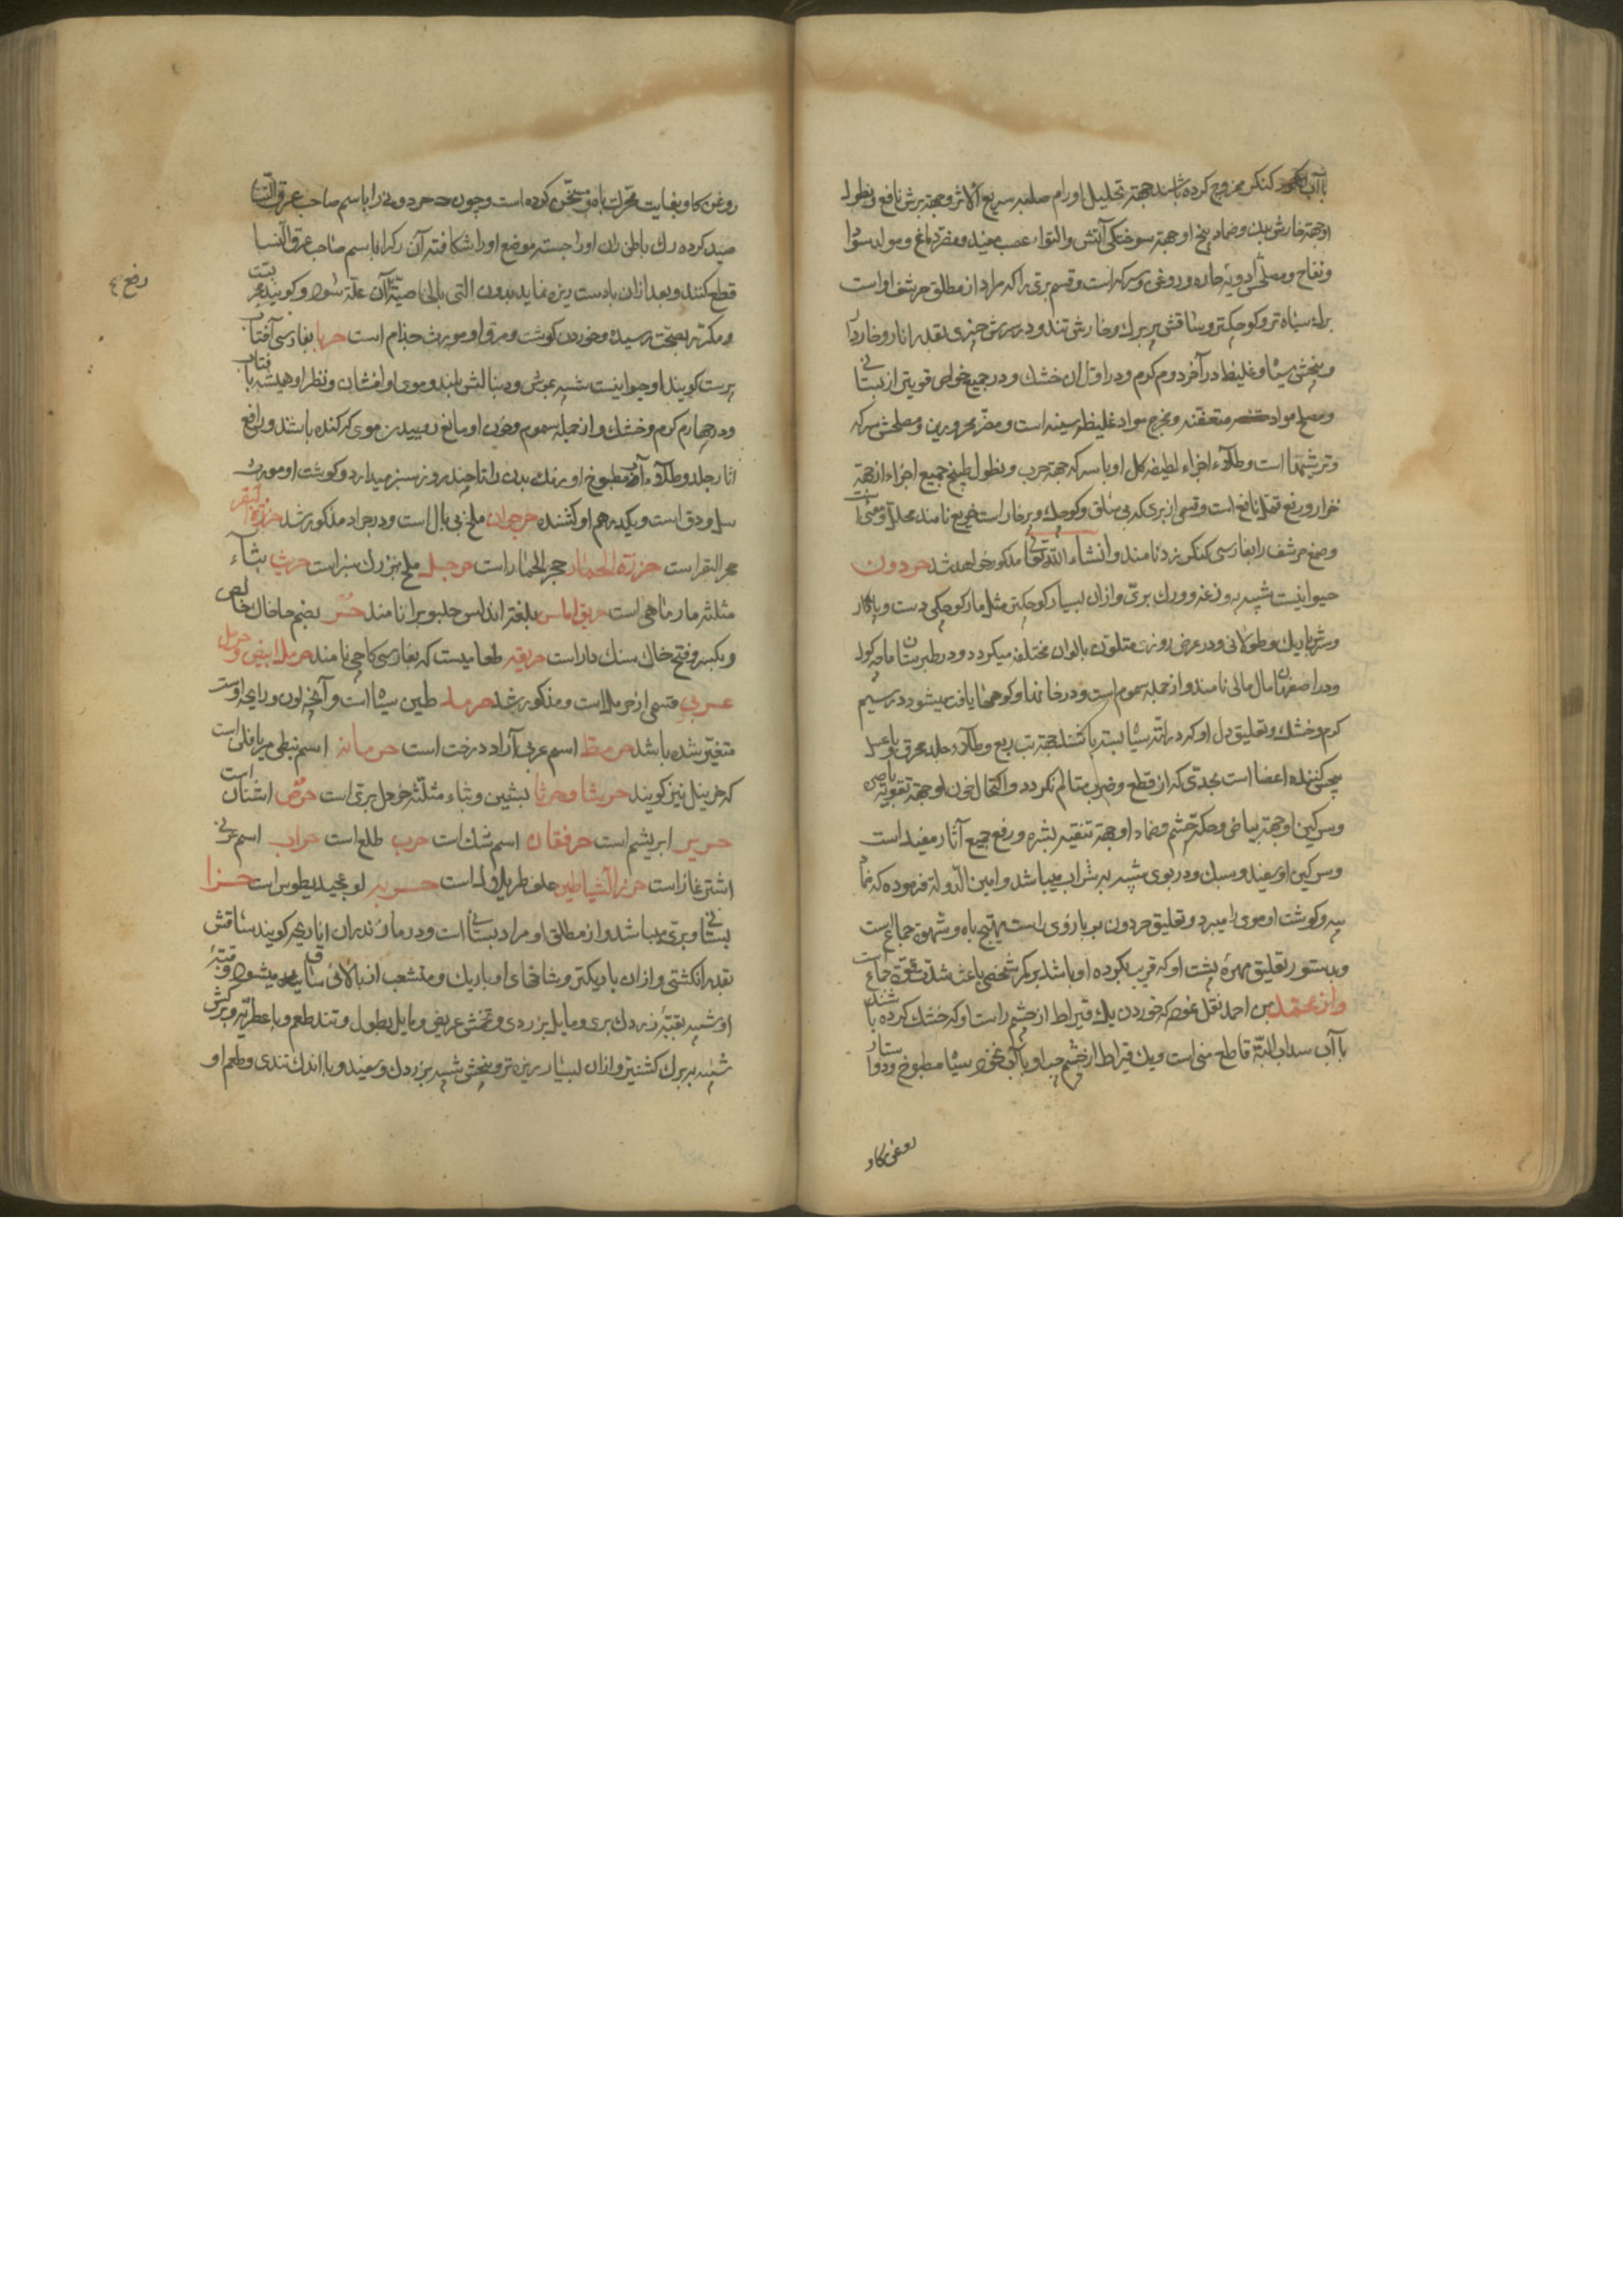 باآب کنکر ممزوج کرده باشند جهة تحلیل اورام صلبه سریع الاثر و جهة برش نافع و نطول
او جهة خارش بدن و ضماد بیخ او جهة سوختکی آتش و التواء عصب مفید و مضر دماغ و مولد سودا
و نفاخ و مصلحش ادویهٔ حاره و روغن و سرکه است و قسم بری را که مراد از مطلق حرشف او است
برك سیاه تر و کوچکتر و ساقش پر برك و خارش تند و در سرش چیزی بقدر انار و خاردار
و بیخش سیاه و غلیظ در آخر دوم کرم و در اول ان خشك و در جمیع خواص قویتر از بستانی
و مصلح مواد متعفنه و مخرج مواد غلیظهٔ سینه است و مضر محرورین و مصلحش سرکه
و ترشیها است و طلاء اجزاء لطیفه کل او با سرکه جهة جرب و نطول طبیخ جمیع اجزاء از جهة
خزار و رفع قمل نافع است و قسمی از بری که بی ساق و کوچك و پرخار است خریع نامند محلل و منبت
و صمغ حرشف را بفارسی کنکر زد نامند و انشاء الله تعالی مذکور خواهد شد حردون
حیوانیست شبیه به وزغه و ورك بری و ازان بسیار کوچکتر مثل مار کوچکی دست و پادار
و سرش باریك و طولانی و در عرض روز متلون بالوان مختلفه میکردد و در طبرستان ماچه کول
و در اصفهان مال مالی نامند و از جمله سموم است و در خانها و کوهها یافت میشود در سیم
کرم و خشك و تعلیق دل او که در لتهٔ سیاه بسته باشند جهة تب ربع و طلاء جلد محرق او با عسل
بیحس کننده اعضا است بحدی که از قطع و ضرب متالم نکردد و اکتحال خون او جهة تقویة باصره
و سرکین او جهة بیاض و حکهٔ چشم و ضماد او جهة تنقیه بشره و رفع جمیع آثار مفید است
و سرکین او سفید و سبك و در بوی شبیه به شراب میباشد و امین الدوله فرموده که ضماد
پیه و کوشت او موی را میبرد و تعلیق حردون بر بازوی راست مهیج باه و شهوة جماع است
و بدستور تعلیق مهرهٔ پشت او که قریب بکرده او باشد بر کمر شخصی باعث شدت قوة جماع است
و از محمد بن احمد نقل نموده که خوردن یك قیراط از چشم راست او که خشك کرده باشند
با آب سداب البتة قاطع منی است و یك قیراط از چشم چپ او با آب نخود سیاه مطبوخ و دو استار
روغن کاو
روغن کاو بغایت محرك باه مبرودین کرده است و چون حردونی را باسم صاحب عرق النسا
صید کرده رك باطن ران او را جسته موضع او را شکافته آن رك را باسم صاحب عرق النسا
قطع کنند و بعد ازان با دست ریزه نماید بدون التی بالخاصیة رافع آن علة شود و کویند مجربست
رفع
و مکرر بصحت رسیده و خوردن کوشت و مرق او مورث جذام است حربا بفارسی آفتاب
پرست کویند او حیوانیست شبیه بموش و دنبالش بلند و موی او افشان و نظر او همیشه بآفتاب
و در چهارم کرم و خشك و از جمله سموم و خون او مانع روییدن موی که کنده باشند و رافع
اثار جلد و طلاء مطبوخ او رنك بدن را تا چند روز سبز میدارد و کوشت او مورث
سل و دق است و یکدرهم او کشنده حرجوان ملخ بی بال است و در جراد مذکور شد حرزة البقر
حجر البقر است حرزة الحمار حجر الحمار است حرجل ملخ بزرك سبز است حریث بثاء
مثلثه مار ماهی است حریق املس بلغة اندلس حلبوب را نامند حر بضم حا خاك خالص
و بکسر و فتح خاك سنك دار است حریقه طعامیست که بفارسی کاچی نامند حرمل ابیض و حرمل
عربی قسمی از حرمل است و مذکور شد حرمد طین سیاه است و آنچه لون و رایحه او است
متغیر شده باشد حرمظ اسم عربی آزاد درخت است حرمانه اسم نبطی مریافلن است
که خرینل نیز کویند حریشا و حرثا بشین و ثاء مثلثه خردل بری است حرض اشنان است
حریر ابریشم است حرفقان اسم شك است حرب طلع است حراب اسم عربی
اشترغاز است حرز الشیاطین علف طریلاوله است حربه لونخیطوس است حزا
بستانی و بری میباشد و از مطلق او مراد بستانی است و در مازندران اناریجه کویند ساقش
بقدر انکشتی و ازان باریکتر و شاخهای او باریك و منشعب از بالائی ساق میشود و قبه
او شبیه بقبهٔ زردك بری و مایل بزردی و تخمش عریض و مایل بطول و تند طعم و با عطریه و برکش
شبیه ببرك کشنیز و ازان بسیار ریزه تر و بیخش شبیه بزردك و سفید و با اندك تندی و طعم او